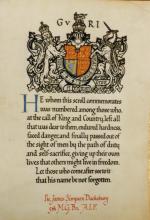 G V R I
HE whom this scroll commemorates
was numbered among those who,
at the call of King and Country, left all
that was dear to them, endured hardness,
faced danger, and finally passed out of
the sight of men by the path of duty
and self-sacrifice, giving up their own
lives that others might live in freedom.
Let those who come after see to it
that his name be not forgotten.
Pte. James Simpson Duckobury
M.G. Bn. A.I.F.